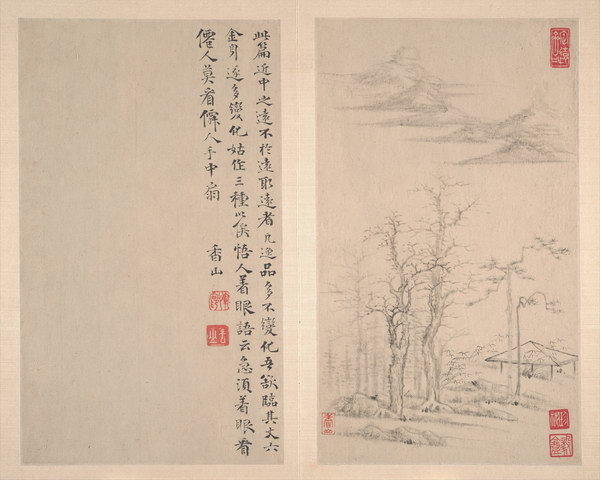 此篇近中之遠不於遠取遠者凡逸品多不變化吾欲臨其丈六
金身遂多變化姑作三種以俟悟人著眼語云急須著眼看
僊人莫看僊人手中扇
香山